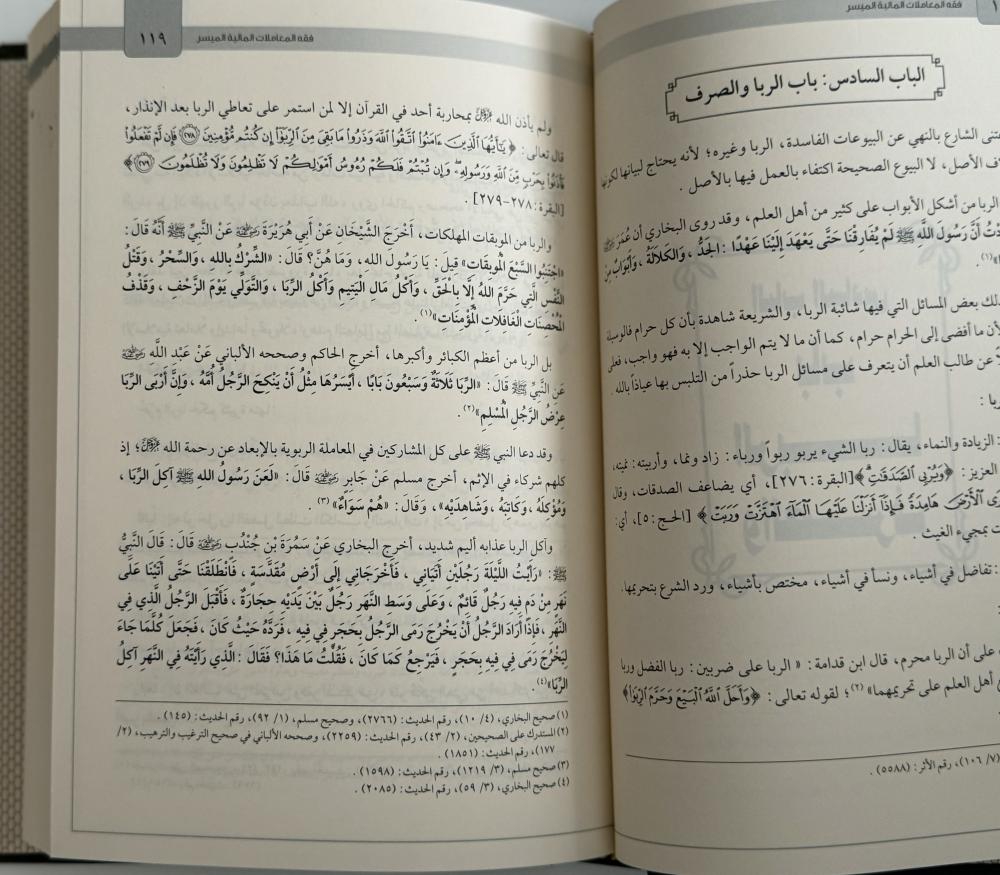 فقه المعاملات المالية الميسر
الباب السادس: باب الربا والصرف
تنى الشارع بالنهي عن البيوعات الفاسدة، الربا وغيره؛ لأنه يحتاج لبيانها لكونها
ف الأصل، لا البيوع الصحيحة اكتفاء بالعمل فيها بالأصل.
الربا من أشكل الأبواب على كثير من أهل العلم، وقد روى البخاري أن عُمَرَ
أَنَّ رَسُولَ اللَّهِ ﷺ لَمْ يُفَارِقْنَا حَتَّى يَعْهَدَ إِلَيْنَا عَهْدًا: الجَدُّ، وَالكَلَالَةُ، وَأَبْوَابٌ مِنْ
(١).
ذلك بعض المسائل التي فيها شائبة الربا، والشريعة شاهدة بأن كل حرام فالوسيلة
لأن ما أفضى إلى الحرام حرام، كما أن ما لا يتم الواجب إلا به فهو واجب، فعلى
عن طالب العلم أن يتعرف على مسائل الربا حذراً من التلبس بها عياذاً بالله.
ربا:
: الزيادة والنماء، يقال: ربا الشيء يربو ربواً ورباء: زاد ونما، وأربيته: نميته،
العزيز: ﴿وَيُرْبِي الصَّدَقَتِ﴾ [البقرة: ٢٧٦]، أي يضاعف الصدقات، وقال
رَى الْأَرْضَ هَامِدَةً فَإِذَا أَنزَلْنَا عَلَيْهَا الْمَاءَ اهْتَزَّتْ وَرَبَتْ﴾ [الحج: ٥]، أي:
ت بمجيء الغيث.
: تفاضل في أشياء، ونسأ في أشياء، مختص بأشياء، ورد الشرع بتحريمها.
على أن الربا محرم، قال ابن قدامة: «الربا على ضربين: ربا الفضل وربا
أهل العلم على تحريمهما»(٢)؛ لقوله تعالى: ﴿وَأَحَلَّ اللَّهُ الْبَيْعَ وَحَرَّمَ الرِّبَوٰا﴾
(٧/ ١٠٦)، رقم الأثر: (٥٥٨٨).
١١٩ فقه المعاملات المالية الميسر
ولم يأذن الله ﷻ بمحاربة أحد في القرآن إلا لمن استمر على تعاطي الربا بعد الإنذار،
قال تعالى: ﴿يَٰٓأَيُّهَا الَّذِينَ ءَامَنُوا اتَّقُوا اللَّهَ وَذَرُوا مَا بَقِيَ مِنَ الرِّبَوٰٓا إِن كُنتُم مُّؤْمِنِينَ ۝٢٧٨ فَإِن لَّمْ تَفْعَلُوا
فَأْذَنُوا بِحَرْبٍ مِّنَ اللَّهِ وَرَسُولِهِ ۖ وَإِن تُبْتُمْ فَلَكُمْ رُءُوسُ أَمْوَٰلِكُمْ لَا تَظْلِمُونَ وَلَا تُظْلَمُونَ ۝٢٧٩﴾
[البقرة: ٢٧٨-٢٧٩].
والربا من الموبقات المهلكات، أَخْرَجَ الشَّيْخَان عَنْ أَبِي هُرَيْرَةَ رَضِيَ اللَّهُ عَنْهُ عَنِ النَّبِيِّ ﷺ أَنَّهُ قَالَ:
«اجْتَنِبُوا السَّبْعَ الْمُوبِقَاتِ» قِيلَ: يَا رَسُولَ الله، وَمَا هُنَّ؟ قَالَ: «الشِّرْكُ بِاللهِ، وَالسِّحْرُ، وَقَتْلُ
النَّفْسِ الَّتِي حَرَّمَ اللهُ إِلَّا بِالْحَقِّ، وَأَكْلُ مَالِ الْيَتِيمِ وَأَكْلُ الرِّبَا، وَالتَّوَلِّي يَوْمَ الزَّحْفِ، وَقَذْفُ
الْمُحْصَنَاتِ الْغَافِلَاتِ الْمُؤْمِنَاتِ»(١).
بل الربا من أعظم الكبائر وأكبرها، أخرج الحاكم وصححه الألباني عَنْ عَبْدِ اللَّهِ رَضِيَ اللَّهُ عَنْهُ
عَنِ النَّبِيِّ ﷺ قَالَ: «الرِّبَا ثَلَاثَةٌ وَسَبْعُونَ بَابًا، أَيْسَرُهَا مِثْلُ أَنْ يَنْكِحَ الرَّجُلُ أُمَّهُ، وَإِنَّ أَرْبَى الرِّبَا
عِرْضُ الرَّجُلِ الْمُسْلِمِ»(٢).
وقد دعا النبي ﷺ على كل المشاركين في المعاملة الربوية بالإبعاد عن رحمة الله ﷻ؛ إذ
كلهم شركاء في الإثم، أخرج مسلم عَنْ جَابِرٍ رَضِيَ اللَّهُ عَنْهُ قَالَ: «لَعَنَ رَسُولُ اللهِ ﷺ آكِلَ الرِّبَا،
وَمُؤْكِلَهُ، وَكَاتِبَهُ، وَشَاهِدَيْهِ»، وَقَالَ: «هُمْ سَوَاءٌ»(٣).
وآكل الربا عذابه أليم شديد، أخرج البخاري عَنْ سَمُرَةَ بْنِ جُنْدُبٍ رَضِيَ اللَّهُ عَنْهُ قَالَ: قَالَ النَّبِيُّ
ﷺ: «رَأَيْتُ اللَّيْلَةَ رَجُلَيْنِ أَتَيَانِي، فَأَخْرَجَانِي إِلَى أَرْضٍ مُقَدَّسَةٍ، فَانْطَلَقْنَا حَتَّى أَتَيْنَا عَلَى
نَهَرٍ مِنْ دَمٍ فِيهِ رَجُلٌ قَائِمٌ، وَعَلَى وَسَطِ النَّهَرِ رَجُلٌ بَيْنَ يَدَيْهِ حِجَارَةٌ، فَأَقْبَلَ الرَّجُلُ الَّذِي فِي
النَّهَرِ، فَإِذَا أَرَادَ الرَّجُلُ أَنْ يَخْرُجَ رَمَى الرَّجُلُ بِحَجَرٍ فِي فِيهِ، فَرَدَّهُ حَيْثُ كَانَ، فَجَعَلَ كُلَّمَا جَاءَ
لِيَخْرُجَ رَمَى فِي فِيهِ بِحَجَرٍ، فَيَرْجِعُ كَمَا كَانَ، فَقُلْتُ مَا هَذَا؟ فَقَالَ: الَّذِي رَأَيْتَهُ فِي النَّهَرِ آكِلُ
الرِّبَا»(٤).
(١) صحيح البخاري، (٤/ ١٠)، رقم الحديث: (٢٧٦٦)، وصحيح مسلم، (١/ ٩٢)، رقم الحديث: (١٤٥).
(٢) المستدرك على الصحيحين، (٢/ ٤٣)، رقم الحديث: (٢٢٥٩)، وصححه الألباني في صحيح الترغيب والترهيب، (٢/
١٧٧)، رقم الحديث: (١٨٥١).
(٣) صحيح مسلم، (٣/ ١٢١٩)، رقم الحديث: (١٥٩٨).
(٤) صحيح البخاري، (٣/ ٥٩)، رقم الحديث: (٢٠٨٥).